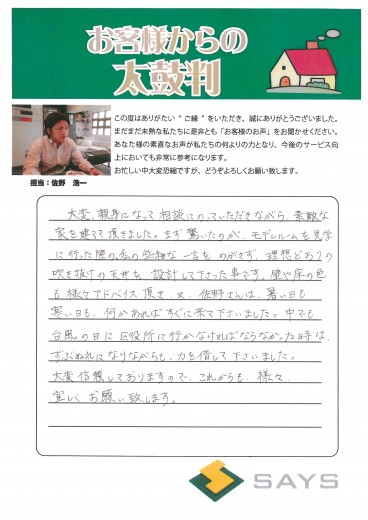 お客様からの
太鼓判
この度はありがたい“ご縁”をいただき、誠にありがとうございました。
まだまだ未熟な私たちに是非とも「お客様のお声」をお聞かせください。
あなた様の素直なお声が私たちの何よりの力となり、今後のサービス向
上においても非常に参考になります。
お忙しい中大変恐縮ですが、どうぞよろしくお願い致します。
担当：佐野 浩一
大変、親身になって相談にのっていただきながら、素敵な
家を建てて頂きました。まず驚いたのが、モデルルームを見学
に行った際の私の些細な一言をのがさず、理想どおりの
吹き抜けの天井を設計して下さった事です。壁や床の色
も様々アドバイス頂き、又、佐野さんは、暑い日も
寒い日も、何かあればすぐに来て下さいました。中でも
台風の日に区役所に行かなければならなかった時は、
ずぶぬれになりながらも、力を借して下さいました。
大変信頼しておりますので、これからも、様々、
宜しくお願い致します。
SAYS